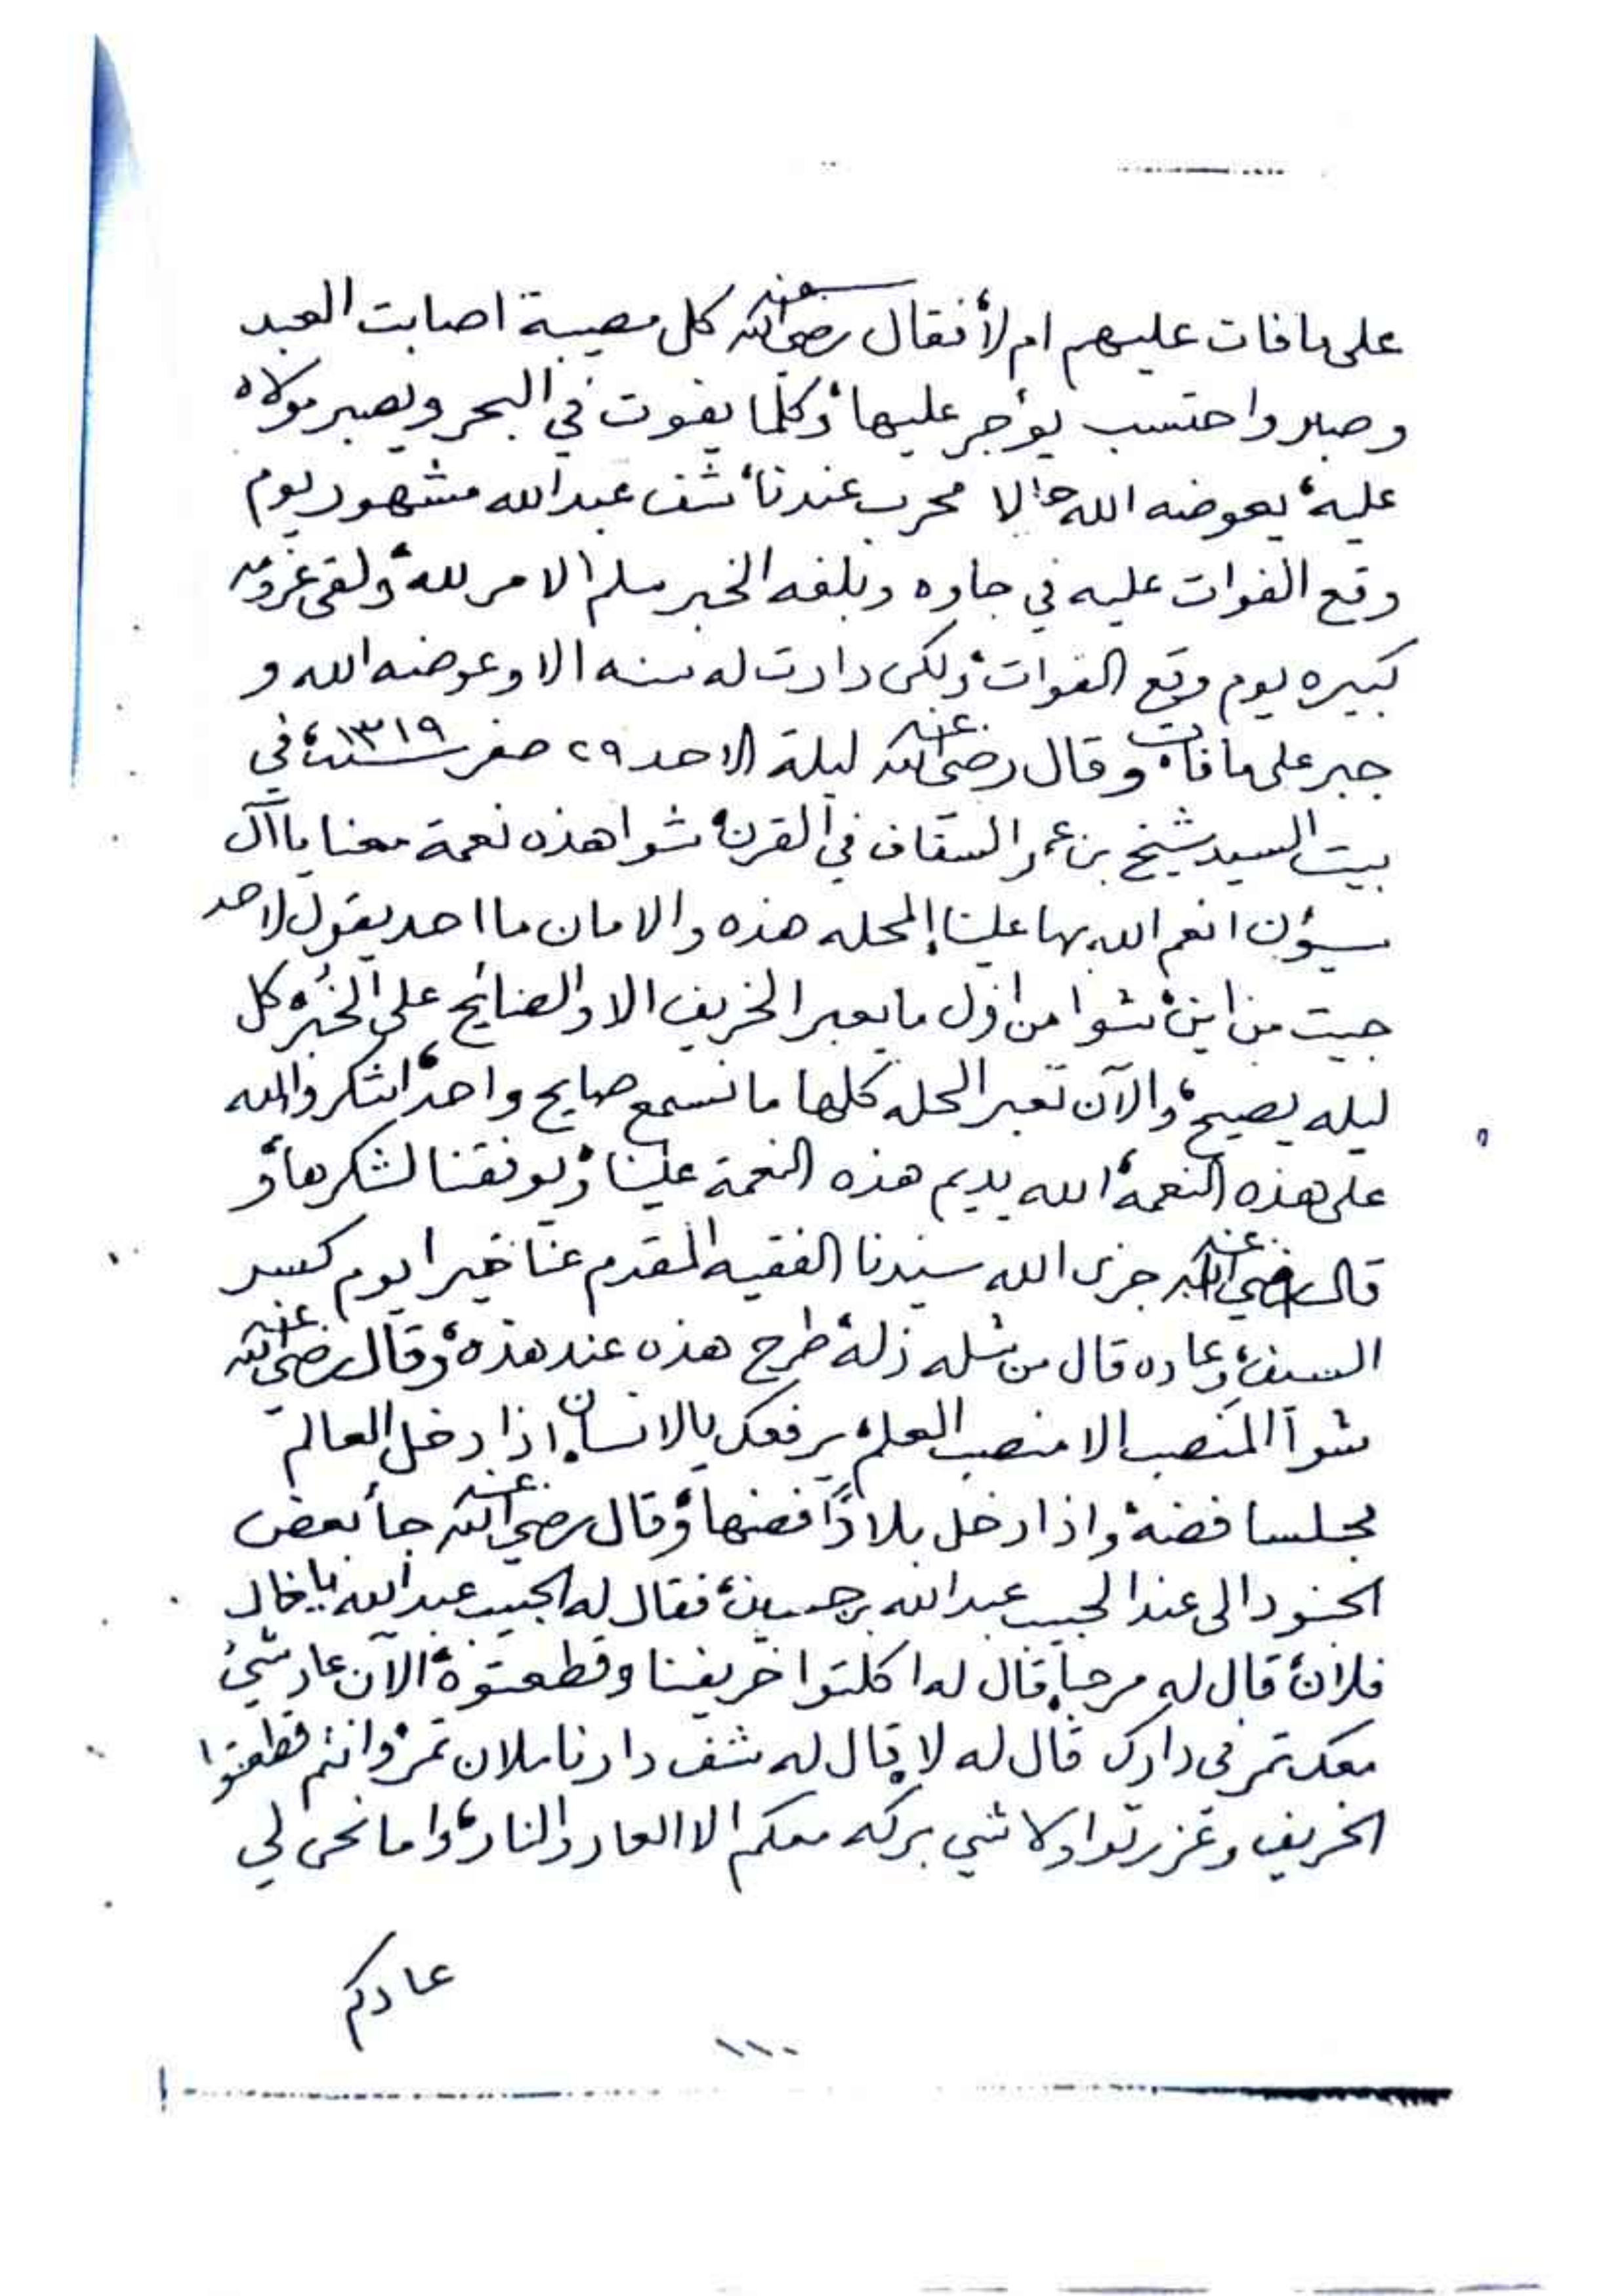 على ما فات عليهم ام لا، فقال رضي الله عنه كل مصيبة اصابت العبد
وصبر واحتسب يؤجر عليها، وكلما يفوت في البحر ويصبر مولاه
عليه، يعوضه الله الا مجرب عندنا، شف عبدالله مشهور يوم
وقع الفوات عليه في جاوه وبلغه الخبر سلم الامر لله، ولقى
كبيره يوم وقع الفوات، ولكن دارت له سنه الا وعوضه الله و
جبر على ما فات، وقال رضي الله عنه ليلة الاحد ٢٩ صفر سنة ١٣١٩، في
بيت السيد شيخ بن عمر السقاف في القرن، شوا هذه نعمة معنا يا آل
سيؤن انعم الله بها علينا المحله هذه والامان ما احد يقول لاحد
جيت من اين، شوا من اول ما يعبر الخريف الا والصنايح على كل
ليله يصيح، والآن تعبر الحله كلها ما تسمع صايح واحد، اشكروا الله
على هذه النعمة، الله يديم هذه النعمة علينا، ويوفقنا لشكرها، و
قال رضي الله عنه جزى الله سيدنا الفقيه المقدم عنا خيرا يوم كسر
السيف، وعاده قال من شله زله، طرح هذه عند هذه، وقال رضي الله عنه
شوا المنصب الا منصب العلم، يرفعك بالانسان، اذا دخل العالم
مجلسا فضه، واذا دخل بلادًا فضها، وقال رضي الله عنه جاء بعض
الجنود الى عند الحبيب عبدالله بن حسين، فقال له الحبيب عبدالله يا خال
فلان، قال له مرحبا، قال له اكلتوا خريفنا وقطعتوه، الآن عاد شيء
معك تمر في دارك قال له لا، قال له شف دارنا ملان تمر، وانتم قطعتوا
الخريف وغزرتوا ولا شي بركه معكم الا العار والنار، واما نحن لي
عادكم
١١٠